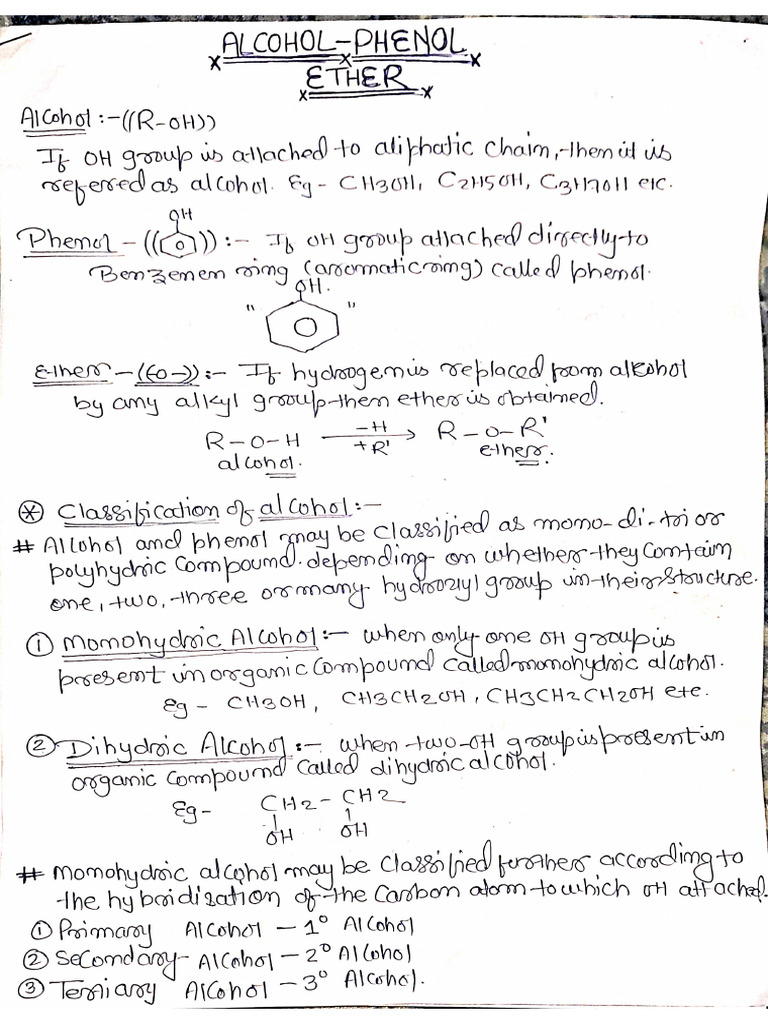 ALCOHOL-PHENOL
ETHER
Alcohol :- ((R-OH))
If OH group is attached to aliphatic chain, then it is
referred as alcohol. Eg - CH3OH, C2H5OH, C3H7OH etc.
OH
Phenol - (( )) :- If OH group attached directly to
Benzenen ring (aromatic ring) called phenol.
OH.
" "
Ether - (-(O-)) :- If hydrogen is replaced from alcohol
by any alkyl group then ether is obtained.
R-O-H -H +R' → R-O-R'
alcohol. ether.
* Classification of alcohol :-
# Alcohol and phenol may be classified as mono-di-tri or
polyhydric compound. depending on whether they contain
one, two, three or many hydroxyl group in their structure.
① Monohydric Alcohol :- when only one OH group is
present in organic compound called monohydric alcohol.
Eg - CH3OH, CH3CH2OH, CH3CH2CH2OH etc.
② Dihydric Alcohol :- when two-OH group is present in
organic compound called dihydric alcohol.
Eg- CH2-CH2
OH OH
# Monohydric alcohol may be classified further according to
the hybridization of the carbon atom to which OH attached.
① Primary Alcohol - 1° Alcohol
② Secondary- Alcohol - 2° Alcohol
③ Tertiary Alcohol - 3° Alcohol.